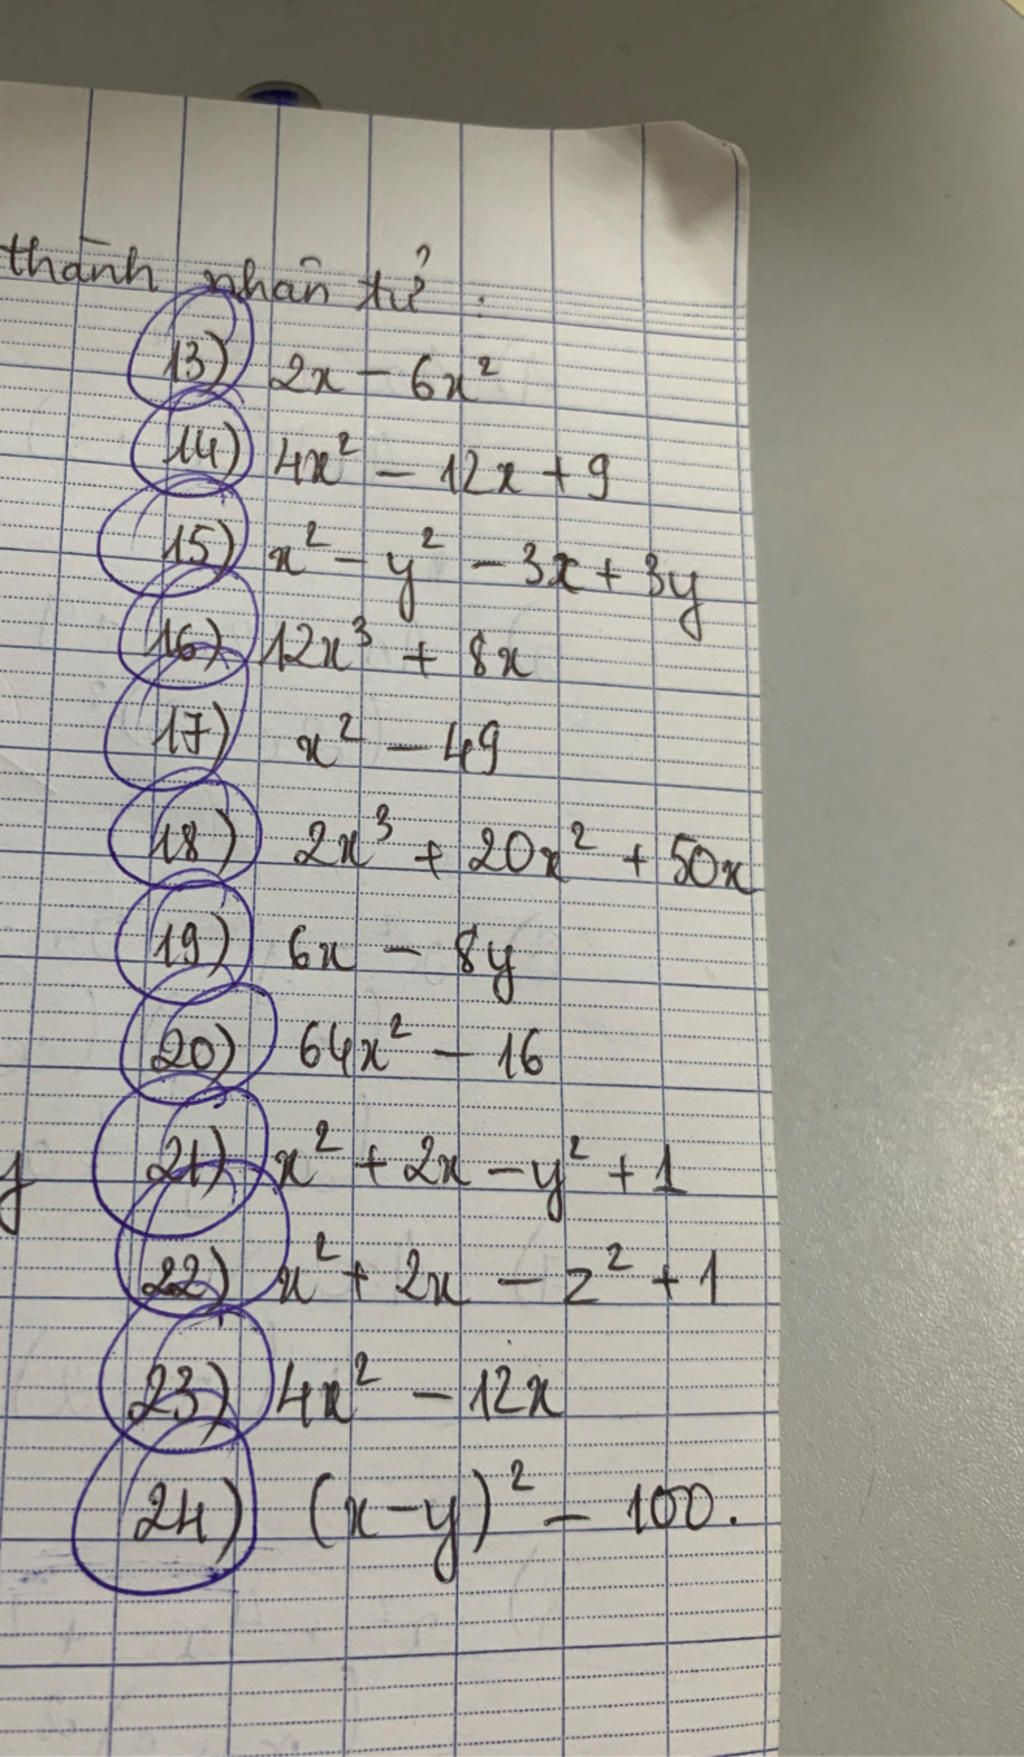 thành nhân tử :
13) 2x - 6x²
14) 4x² - 12x + 9
15) x² - y² - 3x + 3y
16) 12x³ + 8x
17) x² - 49
18) 2x³ + 20x² + 50x
19) 6x - 8y
20) 64x² - 16
21) x² + 2x - y² + 1
22) x² + 2x - z² + 1
23) 4x² - 12x
24) (x-y)² - 100.